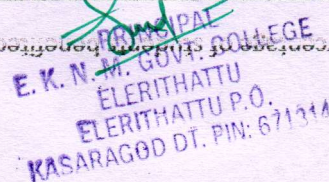 PRINCIPAL
E. K. N. M. GOVT. COLLEGE
ELERITHATTU
ELERITHATTU P.O.
KASARAGOD DT. PIN: 671314